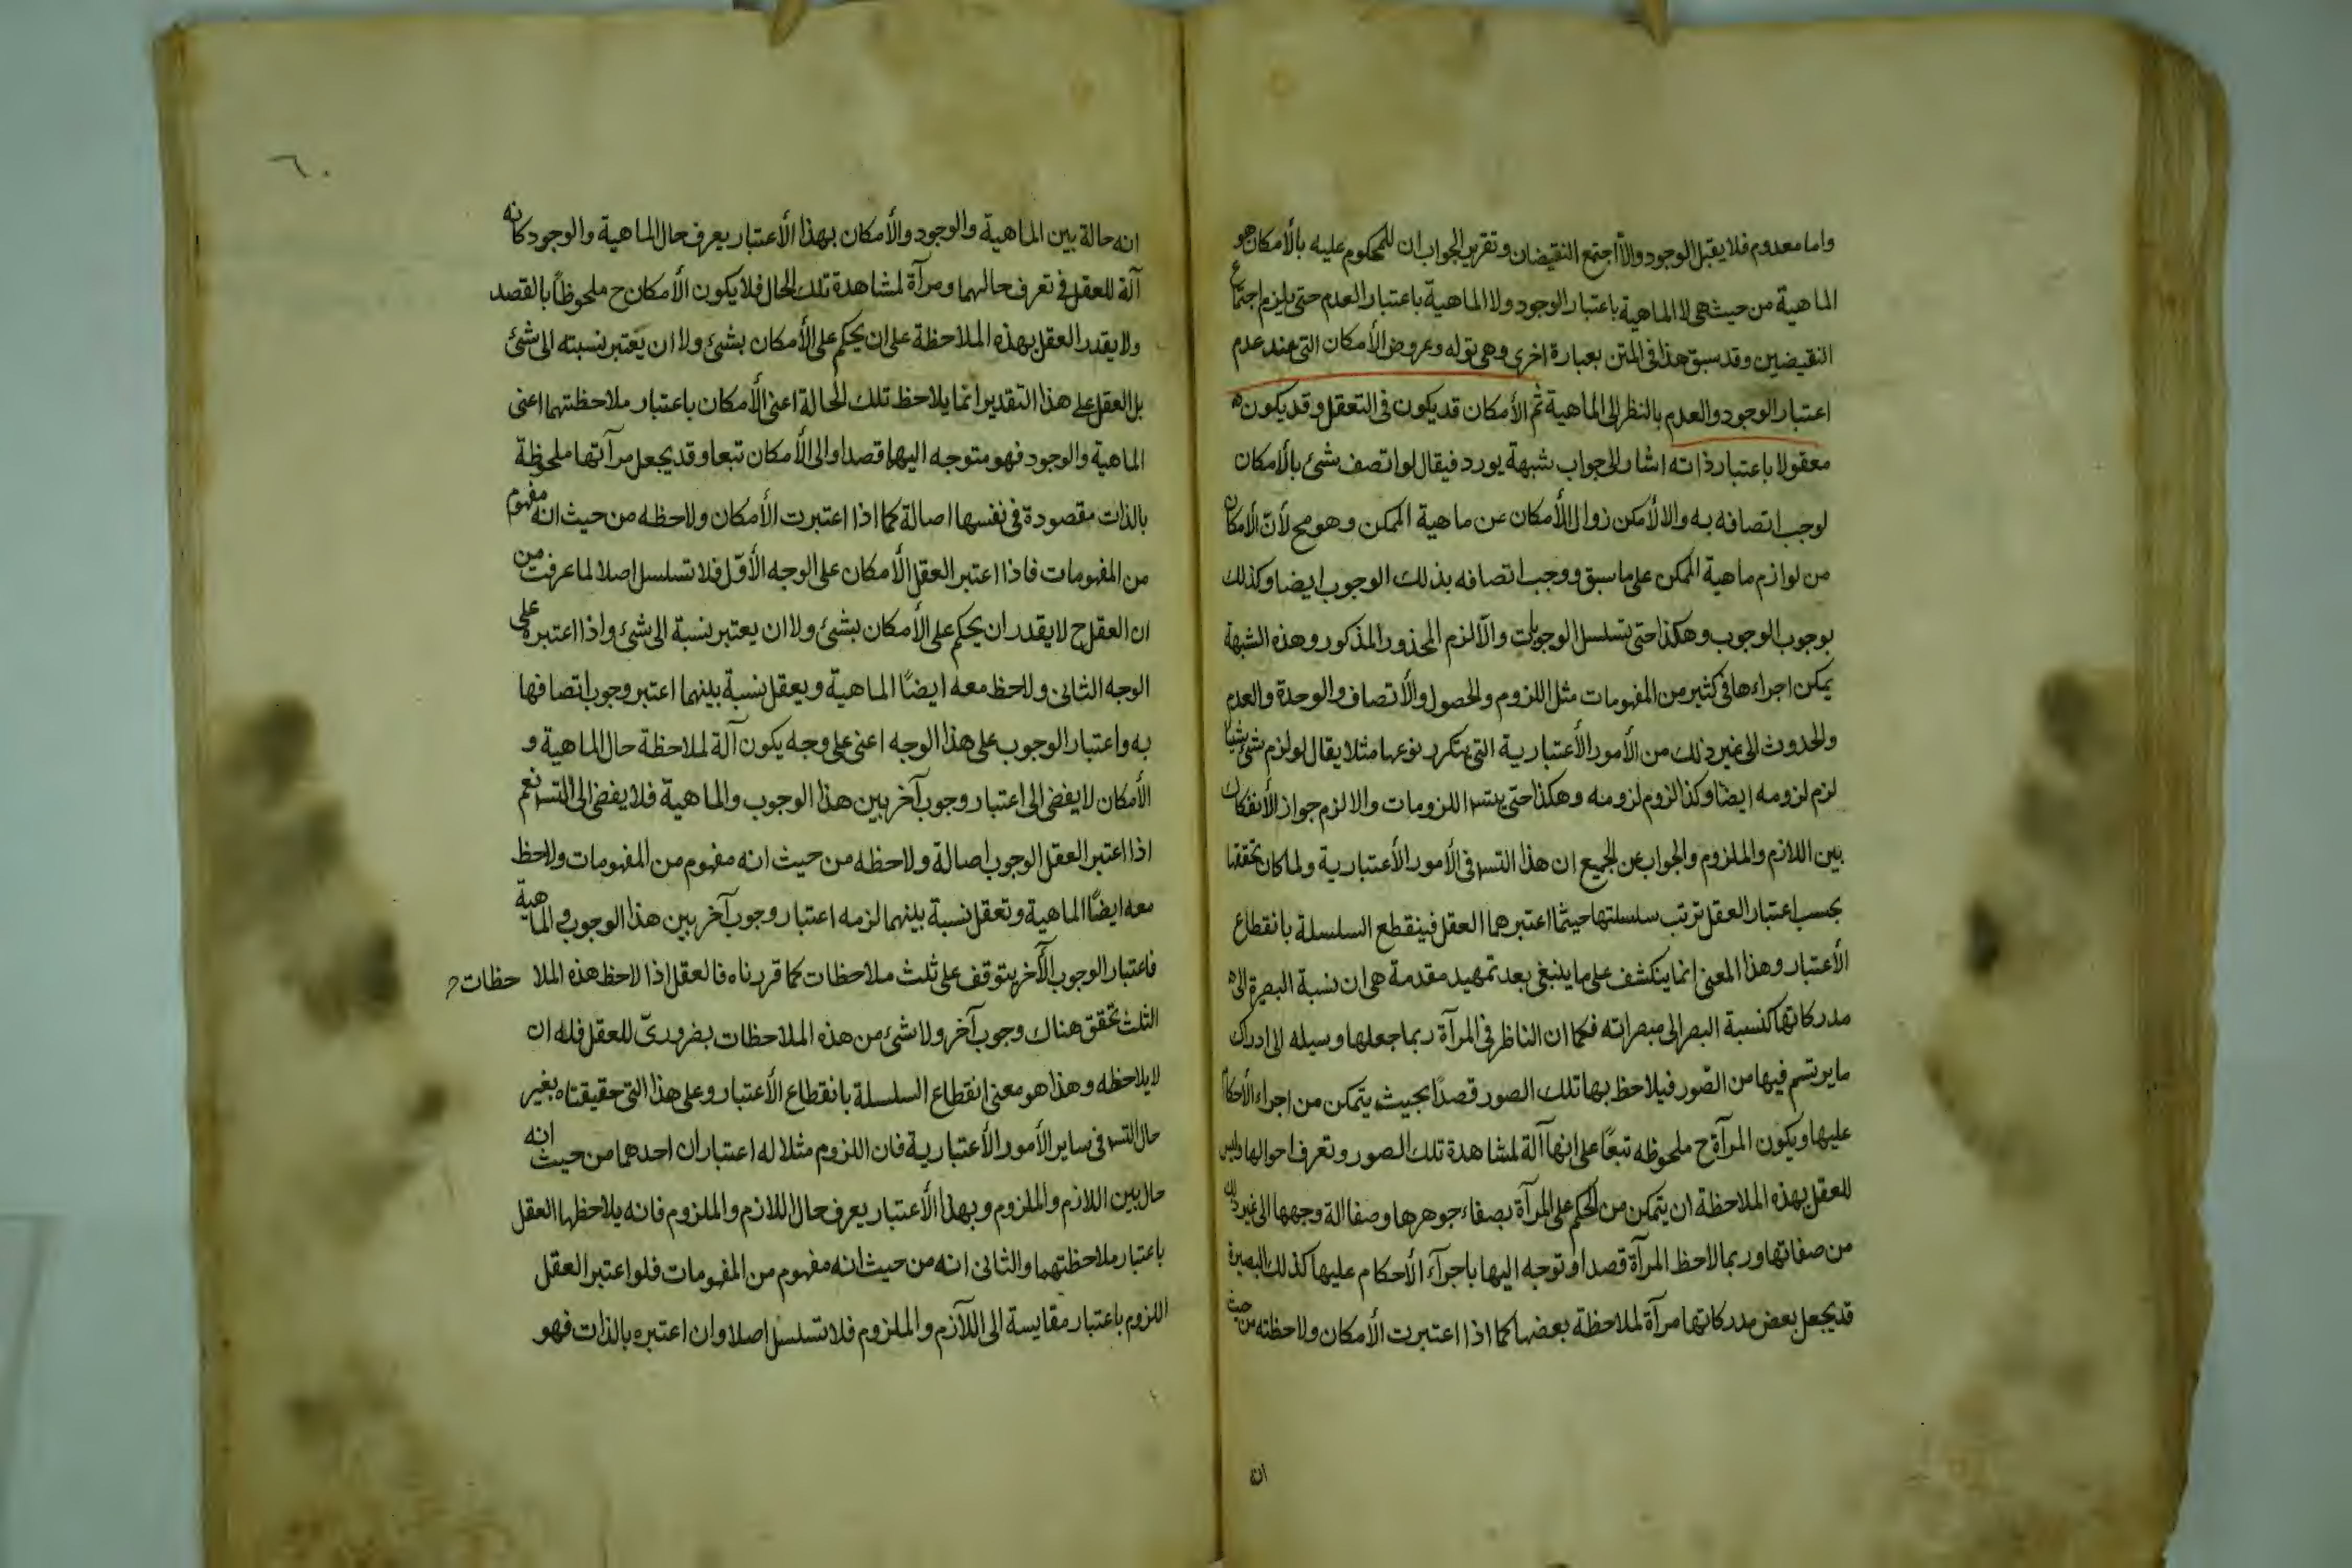 واما معدوم فلا يقبل الوجود والا اجتمع النقيضان وتقرير الجواب ان المحكوم عليه بالأمكان هو
الماهية من حيث هى لا الماهية باعتبار الوجود ولا الماهية باعتبار العدم حتى يلزم اجتماع
النقيضين وقد سبق هذا فى المتن بعبارة اخرى وهى قوله وعروض الأمكان التى عند عدم
اعتبار الوجود والعدم بالنظر الى الماهية ثم الأمكان قد يكون فى التعقل وقد يكون
معقولا باعتبار ذاته اشار الى جواب شبهة يورد فيقال لو اتصف شئ بالأمكان
لوجب اتصافه به والا لأمكن زوال الأمكان عن ماهية الممكن وهو مح لأن الأمكان
من لوازم ماهية الممكن على ما سبق ووجب اتصافه بذلك الوجوب ايضا وكذلك
بوجوب الوجوب وهكذا حتى يتسلسل الوجوبات والّا لزم المحذور المذكور وهذه الشبهة
يمكن اجراءها فى كثير من المفهومات مثل اللزوم والحصول والأتصاف والوحدة والعدم
والحدوث الى غير ذلك من الأمور الأعتبارية التى يتكرر نوعها مثلا يقال لو لزم شئ شيئا
لزم لزومه ايضا وكذا لزوم لزومه وهكذا حتى يتسـ اللزومات والا لزم جواز الأنفكاك
بين اللازم والملزوم والجواب عن الجميع ان هذا التسـ فى الأمور الأعتبارية ولما كان تحققها
بحسب اعتبار العقل ترتب سلسلتها حيثما اعتبرهما العقل فينقطع السلسلة بانقطاع
الأعتبار وهذا المعنى انما ينكشف على ما ينبغى بعد تمهيد مقدمة هى ان نسبة البصيرة الى
مدركاتها كنسبة البصر الى مبصراته فكما ان الناظر فى المرآة ربما جعلها وسيله الى ادراك
ما يرتسم فيها من الصّور فيلاحظ بها تلك الصور قصدًا بحيث يتمكن من اجراء الأحكام
عليها ويكون المرآة ح ملحوظه تبعًا على انها آلة لمشاهدة تلك الصور وتعرف احوالها وليس
للعقل بهذه الملاحظة ان يتمكن من الحكم على المرآة بصفاء جوهرها وصفالة وجهها الى غير ذلك
من صفاتها وربما لاحظ المرآة قصدا وتوجه اليها باجرآء الأحكام عليها كذلك البصيرة
قد يجعل بعض مدركاتها مرآة لملاحظة بعضها كما اذا اعتبرت الأمكان ولاحظته من حيث
ان
٦٠
انه حالة بين الماهية والوجود والأمكان بهذا الأعتبار يعرف حال الماهية والوجود كانه
آلة للعقل فى تعرف حالهما ومرآة لمشاهدة تلك الحال فلا يكون الأمكان ح ملحوظًا بالقصد
ولا يقدر العقل بهذه الملاحظة على ان يحكم على الأمكان بشئ ولا ان يَعتبر نسبته الى شئ
بل العقل على هذا التقدير انما يلاحظ تلك الحالة اعنى الأمكان باعتبار ملاحظتهما اعنى
الماهية والوجود فهو متوجه اليهما قصدا والى الأمكان تبعا وقد يجعل مرآتها ملحوظة
بالذات مقصودة فى نفسها اصالة كما اذا اعتبرت الأمكان ولاحظه من حيث انه مفهوم
من المفهومات فاذا اعتبر العقل الأمكان على الوجه الأوّل فلا تسلسل اصلا لما عرفت من
ان العقل ح لا يقدر ان يحكم على الأمكان بشئ ولا ان يعتبر نسبة الى شئ واذا اعتبره على
الوجه الثانى ولاحظ معه ايضًا الماهية ويعقل نسبة بينهما اعتبر وجوب اتصافها
به واعتبار الوجوب على هذا الوجه اعنى على وجه يكون آلة لملاحظة حال الماهية و
الأمكان لا يفضى الى اعتبار وجوب آخر بين هذا الوجوب والماهية فلا يفضى الى التسـ نعم
اذا اعتبر العقل الوجوب اصالة ولاحظه من حيث انه مفهوم من المفهومات ولاحظ
معه ايضًا الماهية وتعقل نسبة بينهما لزمه اعتبار وجوب آخر بين هذا الوجوب والماهية
فاعتبار الوجوب الآخر يتوقف على ثلث ملاحظات كما قررناه فالعقل اذا لاحظ هذه الملا حظات
الثلث تحقق هناك وجوب آخر ولا شئ من هذه الملاحظات بضرورىّ للعقل فله ان
لا يلاحظه وهذا هو معنى انقطاع السلسلة بانقطاع الأعتبار وعلى هذا التى حقيقتاه بغير
حال التسـ فى ساير الأمور الأعتبارية فان اللزوم مثلا له اعتباران احدهما من حيث انه
حال بين اللازم والملزوم وبهذا الأعتبار يعرف حال اللازم والملزوم فانه يلاحظها العقل
باعتبار ملاحظتهما والثانى انه من حيث انه مفهوم من المفهومات فلو اعتبر العقل
اللزوم باعتبار مقايسة الى اللآزم والملزوم فلا تسلسل اصلا وان اعتبره بالذات فهو